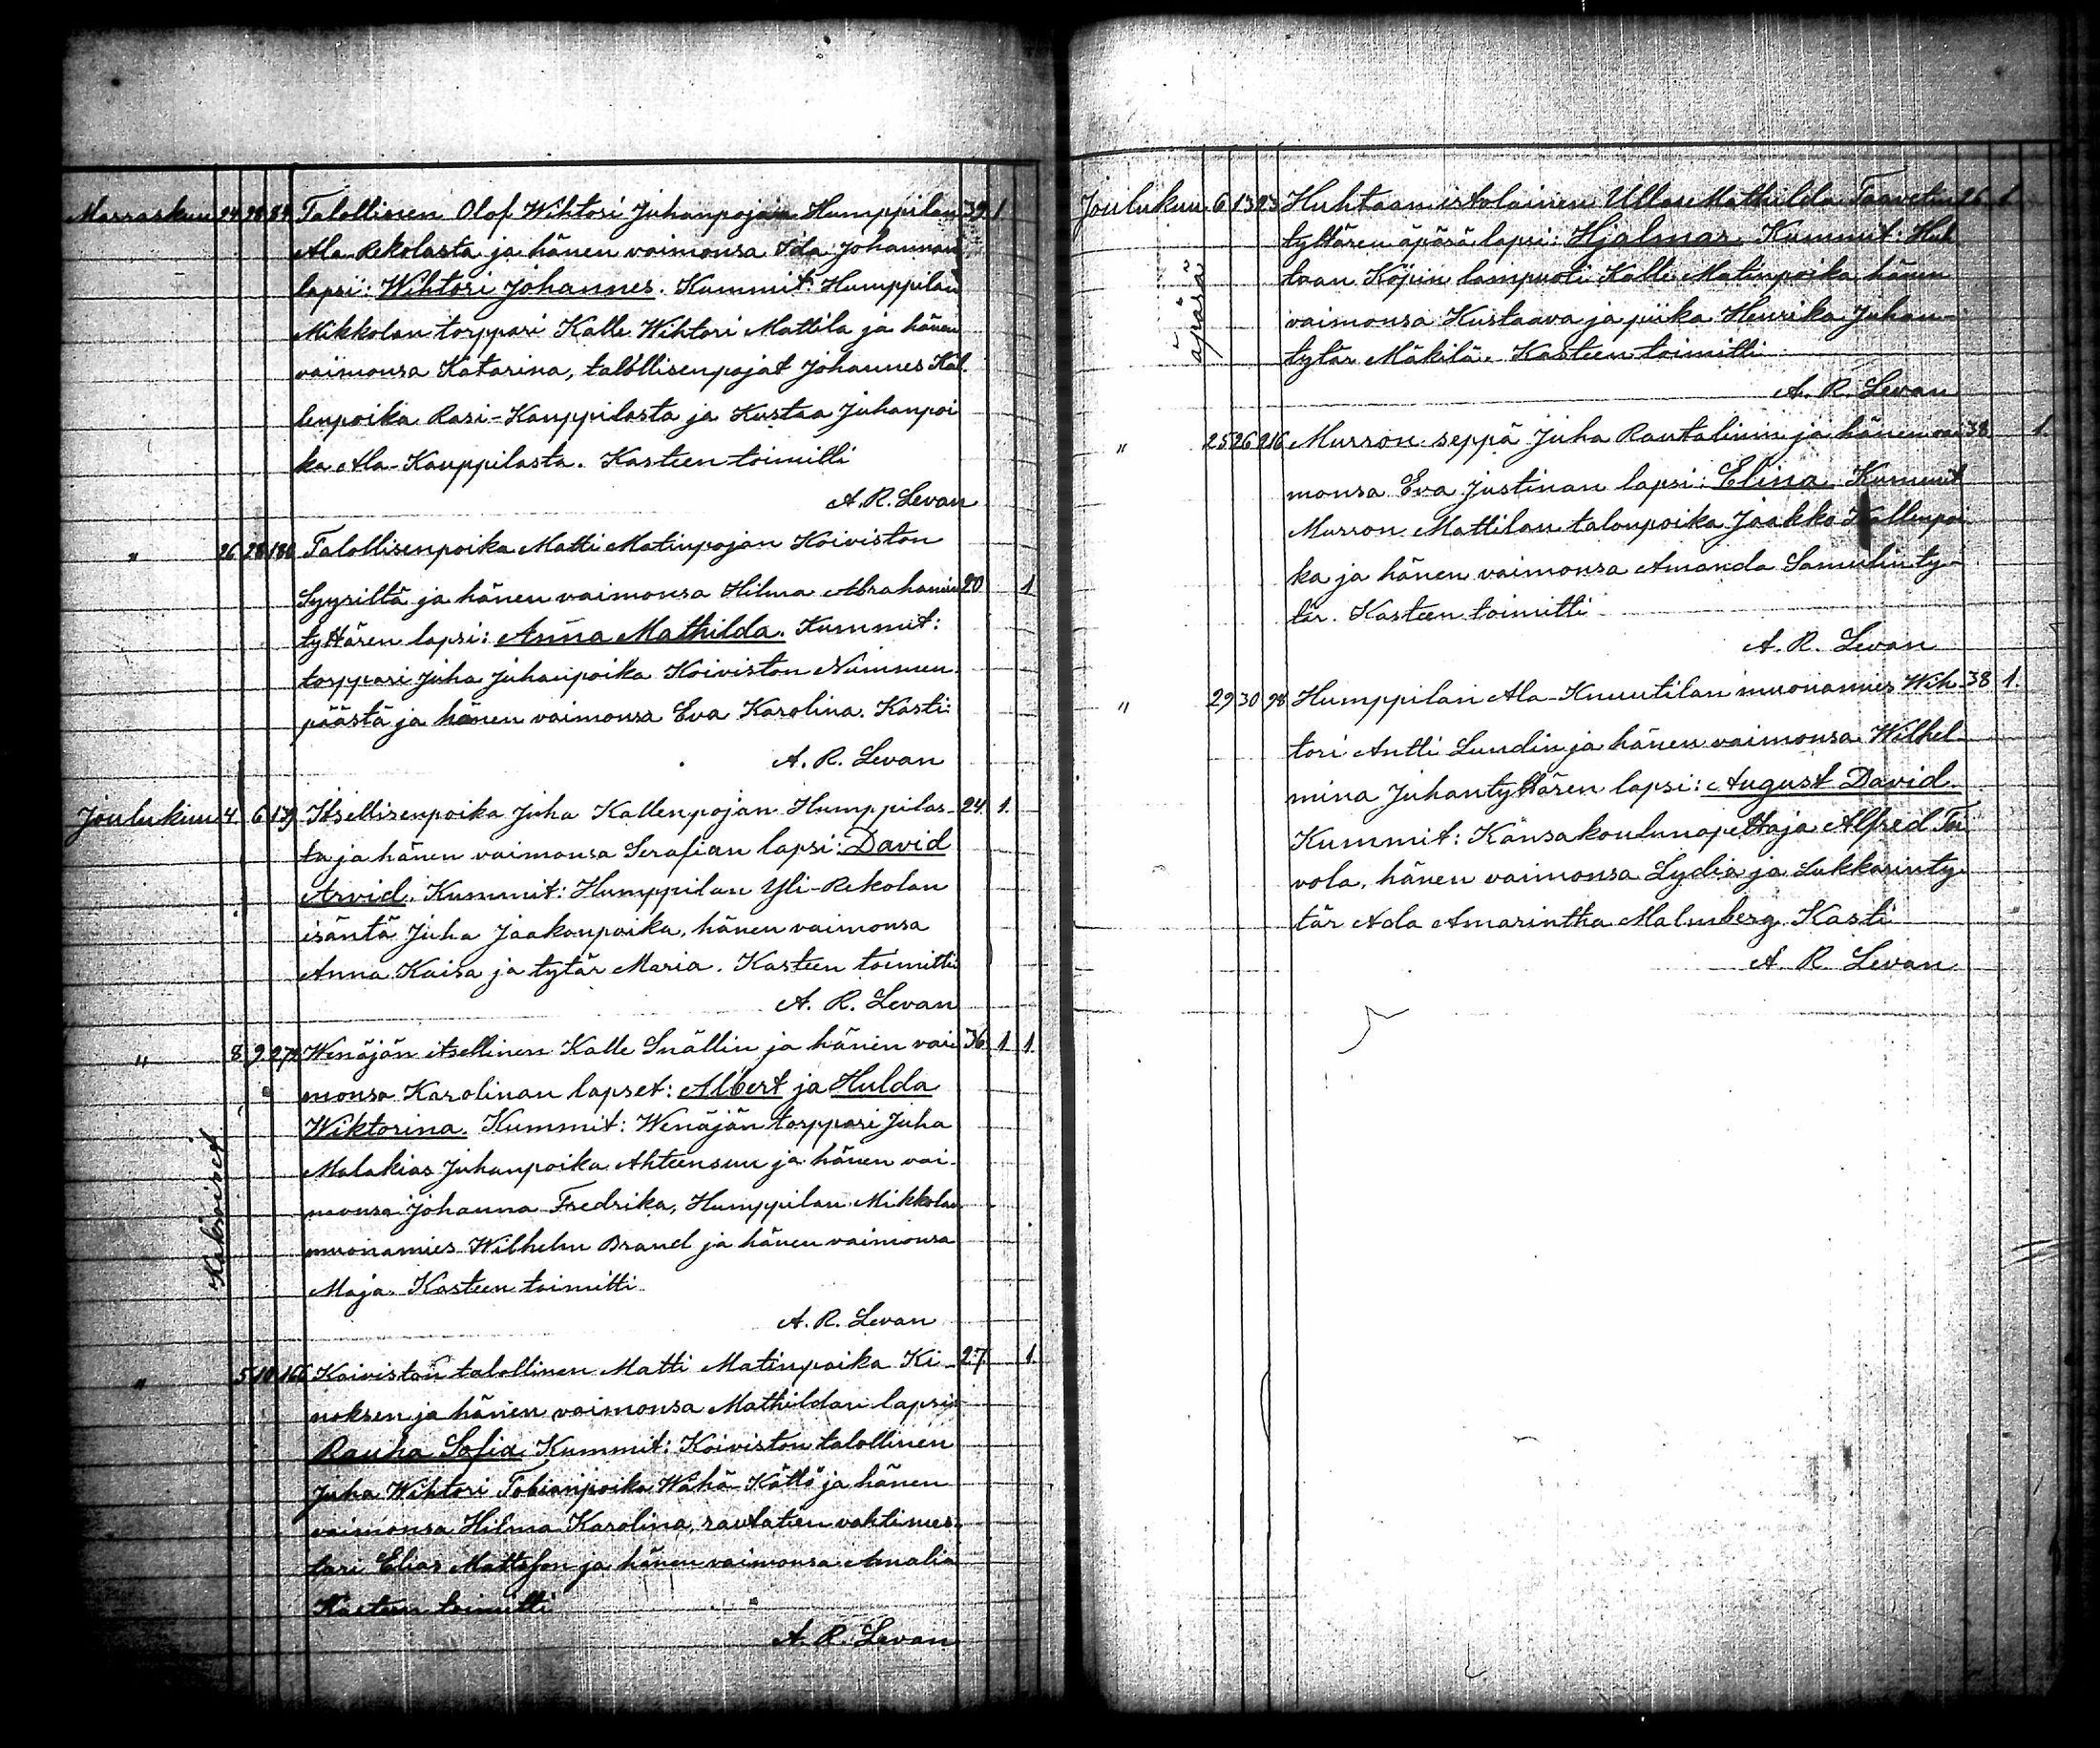 Marraskuu 24 28 84 Talollinen Olof Wihtori Juhanpojan Humppilan 39 1
Ala Rekolasta ja hänen vaimonsa Ida Johannan
lapsi: Wihtori Johannes. Kummit: Humppilan
Mikkolan torppari Kalle Wihtori Mattila ja hänen
vaimonsa Katarina, talollisenpojat Johannes Kal-
lenpoika Rasi-Kauppilasta ja Kustaa Juhanpoi
ka Ala-Kauppilasta. Kasteen toimitti
A. R. Levan
" 26 28 180 Talollisenpoika Matti Matinpojan Koiviston
Syyriltä ja hänen vaimonsa Hilma Abrahamin 20 1
tyttären lapsi: Anna Mathilda. Kummit:
torppari Juha Juhanpoika Koiviston Nummen
päästä ja hänen vaimonsa Eva Karolina. Kasti:
A. R. Levan
Joulukuu 4 6 139 Itsellisenpoika Juha Kallenpojan Humppilas- 24 1.
ta ja hänen vaimonsa Serafian lapsi: David
Arvid. Kummit: Humppilan Yli-Rekolan
isäntä Juha Jaakonpoika, hänen vaimonsa
Anna Kaisa ja tytär Maria. Kasteen toimitti
A. R. Levan
" 8 9 274 Wenäjän itsellinen Kalle Snällin ja hänen vai 36 1 1
monsa Karolinan lapset: Albert ja Hulda
Wiktorina. Kummit: Wenäjän torppari Juha
Malakias Juhanpoika Ahteensuu ja hänen vai-
monsa Johanna Fredrika, Humppilan Mikkolan
muonamies Wilhelm Brand ja hänen vaimonsa
Maja. Kasteen toimitti
Kaksoiset
A. R. Levan
" 5 10 166 Koiviston talollinen Matti Matinpoika Ki- 27 1
noksen ja hänen vaimonsa Mathildan lapsi:
Rauha Sofia Kummit: Koiviston talollinen
Juha Wihtori Tobianpoika Wähä-Köttö ja hänen
vaimonsa Hilma Karolina, rautatien vahtimes-
tari Elias Mattsson ja hänen vaimonsa Amalia
Kasteen toimitti
A. R. Levan
Joulukuu 6 13 93 Huhtaan irtolainen Ullan Mathilda Taavetin 26 1
tyttären äpärä lapsi: Hjalmar. Kummit: Huh
taan Köjun lampuoti Kalle Matinpoika hänen
vaimonsa Kustaava ja piika Henrika Juhan-
tytär Mäkilä. Kasteen toimitti
äpärä
A. R. Levan
" 25 26 216 Murron seppä Juha Rautalinin ja hänen vai 38 1.
monsa Eva Justinan lapsi: Elina. Kummit
Murron Mattilan talonpoika Jaakko Kallenpoi
ka ja hänen vaimonsa Amanda Samulinty-
tär. Kasteen toimitti
A. R. Levan
" 29 30 98 Humppilan Ala-Knuutilan muonamies Wih- 38 1.
tori Antti Lundin ja hänen vaimonsa Wilhel-
mina Juhantyttären lapsi: August David.
Kummit: Kansakoulunopettaja Alfred Toi
vola, hänen vaimonsa Lydia ja Lukkarinty-
tär Ada Amarintha Malmberg. Kasti
A. R. Levan